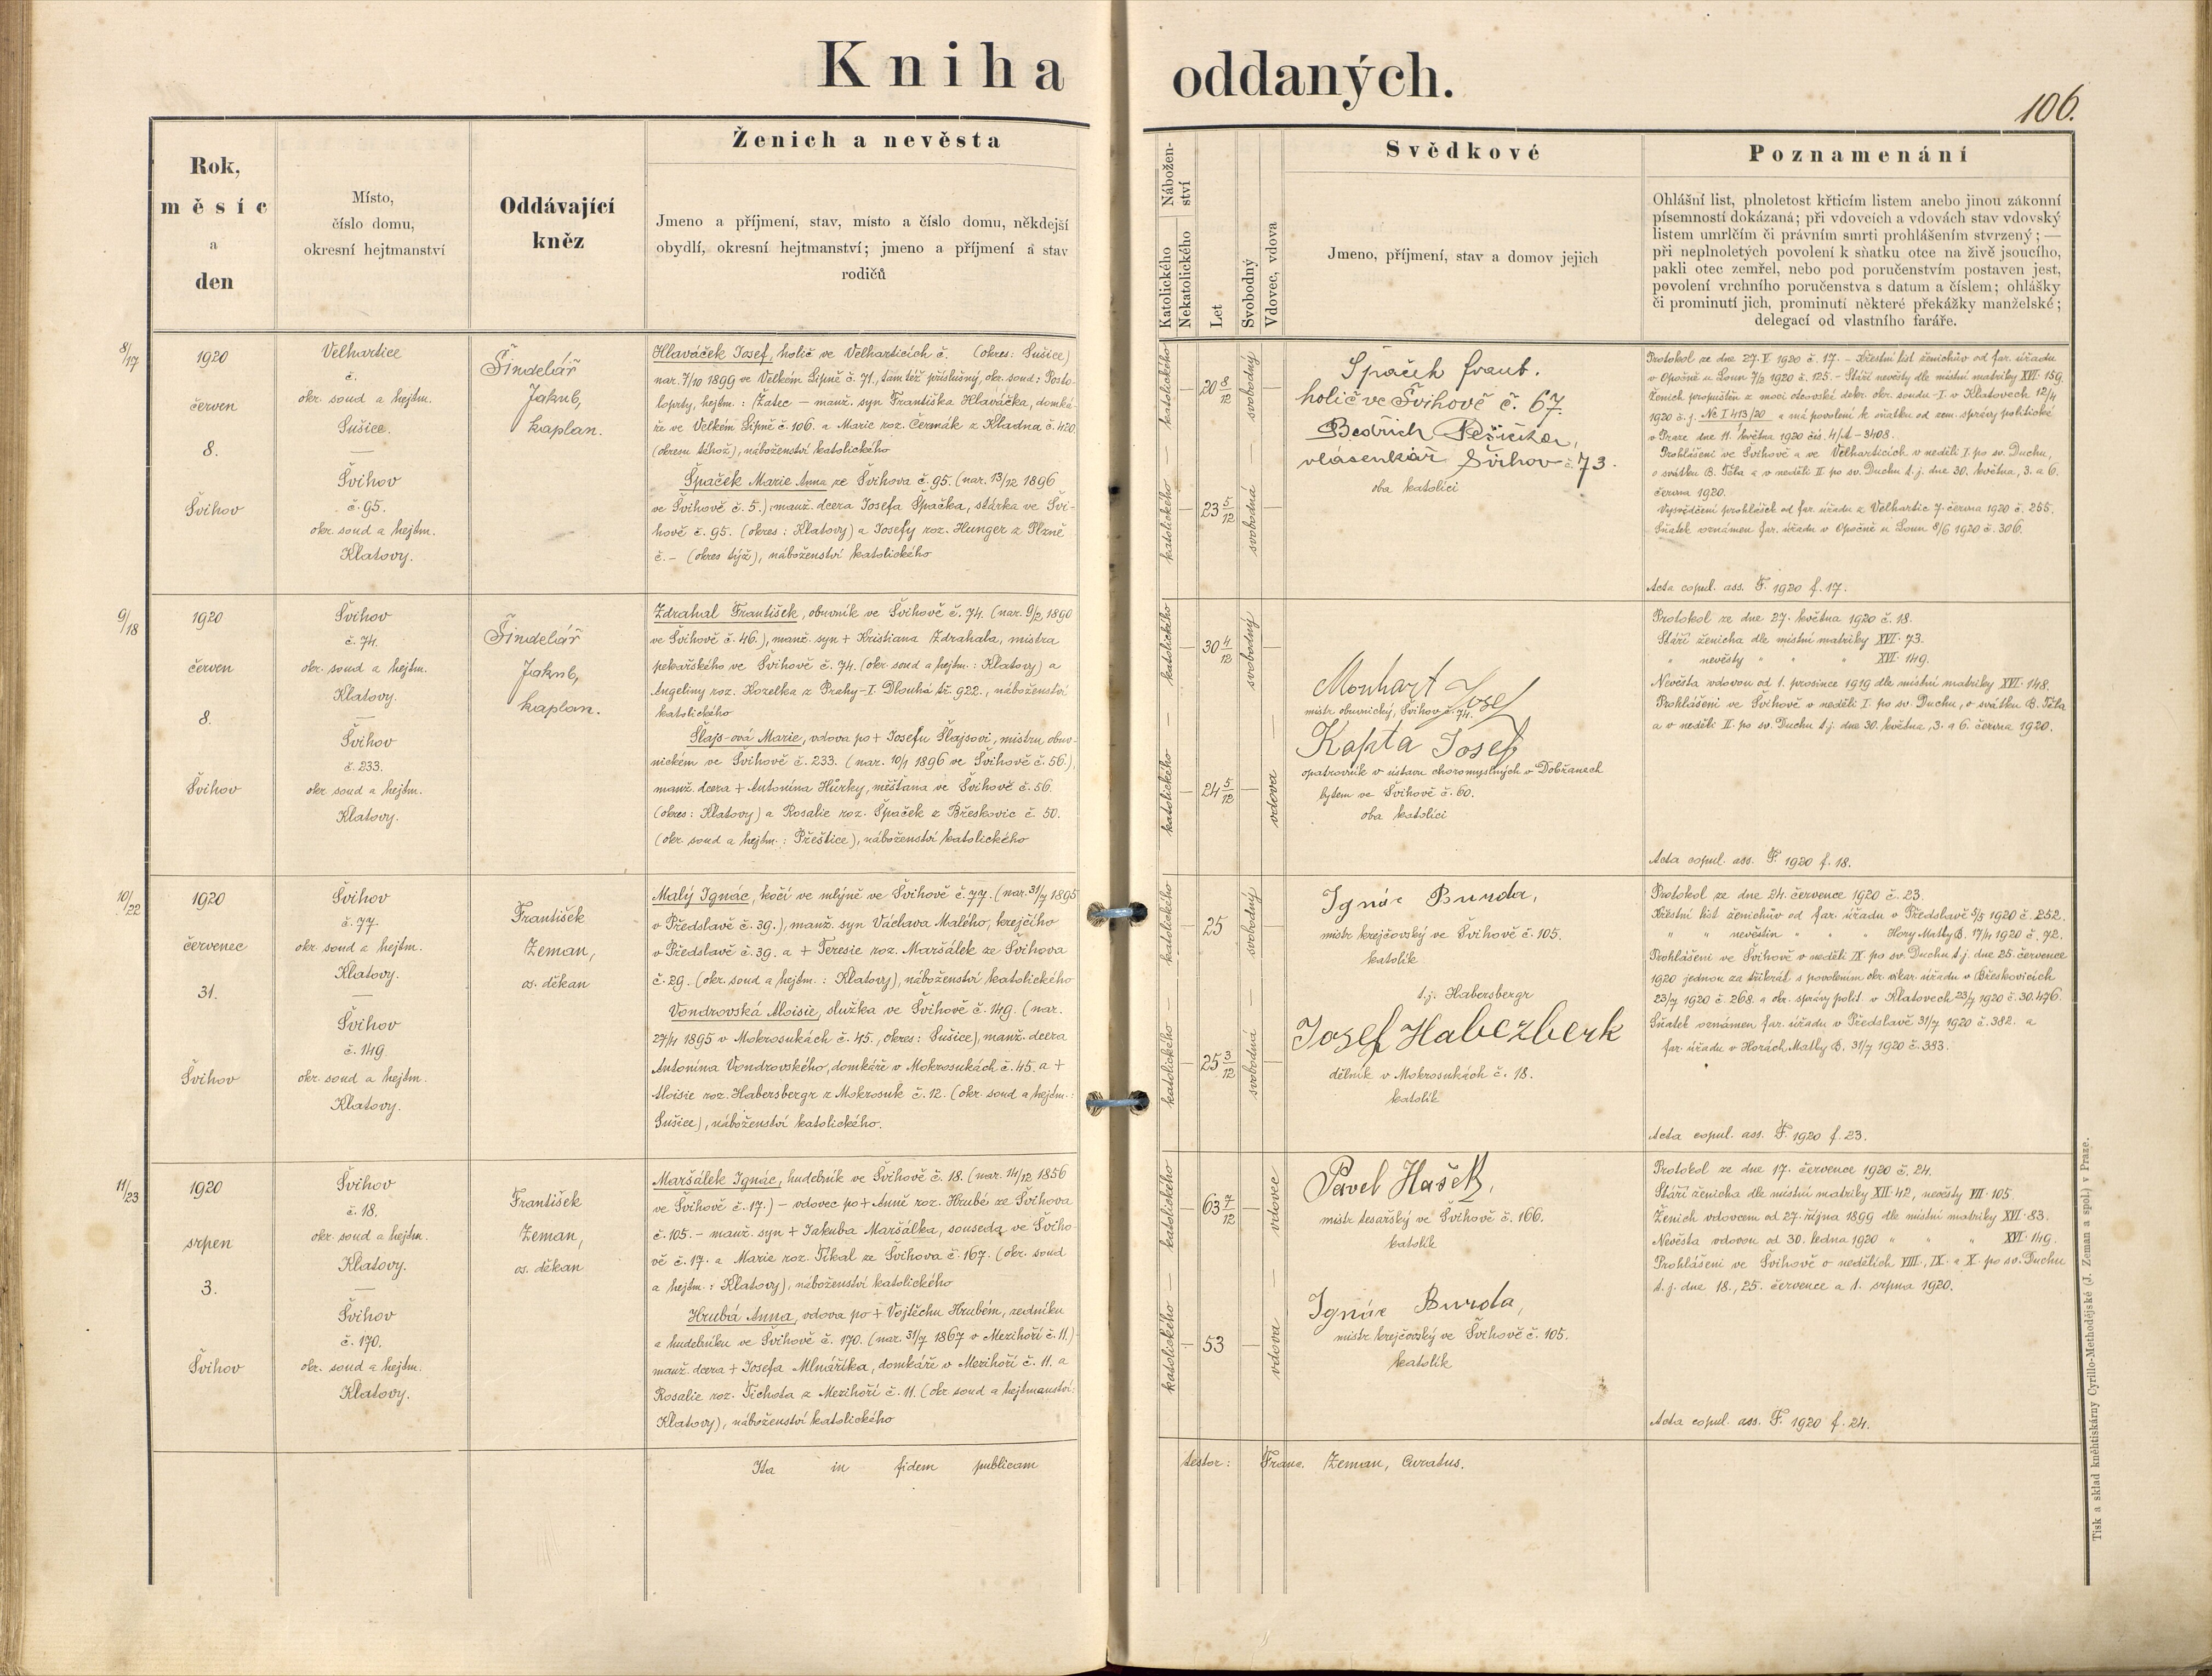 Kniha oddaných.
106.
Rok,
měsíc
a
den
Místo,
číslo domu,
okresní hejtmanství
Oddávající
kněz
Ženich a nevěsta
Jmeno a příjmení, stav, místo a číslo domu, někdejší
obydlí, okresní hejtmanství; jmeno a příjmení a stav
rodičů
Nábožen-
ství
Katolického
Nekatolického
Let
Svobodný
Vdovec, vdova
Svědkové
Jmeno, příjmení, stav a domov jejich
Poznamenání
Ohlášní list, plnoletost křticím listem anebo jinou zákonní
písemností dokázaná; při vdovcích a vdovách stav vdovský
listem umrlčím či právním smrti prohlášením stvrzený; —
při neplnoletých povolení k sňatku otce na živě jsoucího,
pakli otec zemřel, nebo pod poručenstvím postaven jest,
povolení vrchního poručenstva s datum a číslem; ohlášky
či prominutí jich, prominutí některé překážky manželské;
delegací od vlastního faráře.
8/17
1920
červen
8.
Švihov
Velhartice
č.
okr. soud a hejtm.
Sušice.
—
Švihov
č. 95.
okr. soud a hejtm.
Klatovy.
Šindelář
Jakub,
kaplan.
Hlaváček Josef, holič ve Velharticích č. (okres: Sušice)
nar. 7/10 1899 ve Velkém Lipně č. 71., tamtéž příslušný, okr. soud: Posto-
loprty, hejtm.: Žatec — manž. syn Františka Hlaváčka, domká-
ře ve Velkém Lipně č. 106. a Marie roz. Čermák z Kladna č. 420.
(okrem téhož), náboženství katolického
Špaček Marie Anna ze Švihova č. 95. (nar. 13/12 1896
ve Švihově č. 5.), manž. dcera Josefa Špačka, stárka ve Švi-
hově č. 95. (okres: Klatovy) a Josefy roz. Hunger z Plzně
č. – (okres týž), náboženství katolického
katolického — katolického
20 8/12
23 5/12
svobodný — svobodná
Špaček Frant.
holič ve Švihově č. 67.
Bedřich
vlásenkář Švihov č. 73.
oba katolíci
Protokol ze dne 27. V. 1920 č. 17. – Křestní list ženichův od far. úřadu
v Opočně u Loun 7/5 1920 č. 125. – Stáří nevěsty dle místní matriky XVI. 159.
Ženich propuštěn z moci otcovské dekr. okr. soudu -I. v Klatovech 12/4
1920 č. j. Nc I 413/20 a má povolení k sňatku od zem. správy politické
v Praze dne 11. května 1920 čís. 4/A – 3408.
Prohlášeni ve Švihově a ve Velharticích v neděli I. po sv. Duchu,
o svátku B. Těla a v neděli II. po sv. Duchu t. j. dne 30. května, 3. a 6.
června 1920.
Vysvědčení prohlášek od far. úřadu z Velhartic 7. června 1920 č. 255.
Sňatek oznámen far. úřadu v Opočně u Loun 8/6 1920 č. 306.
Acta copul. ass. F. 1920 f. 17.
9/18
1920
červen
8.
Švihov
Švihov
č. 74.
okr. soud a hejtm.
Klatovy.
—
Švihov
č. 233.
okr. soud a hejtm.
Klatovy.
Šindelář
Jakub,
kaplan.
Zdrahal František, obuvník ve Švihově č. 74. (nar. 9/2 1890
ve Švihově č. 46.), manž. syn + Kristiana Zdrahala, mistra
pekařského ve Švihově č. 74. (okr. soud a hejtm.: Klatovy) a
Angeliny roz. Kozelka z Prahy-I. Dlouhá tř. 922., náboženství
katolického
Šlajs-ová Marie, vdova po + Josefu Šlajsovi, mistru obuv-
nickém ve Švihově č. 233. (nar. 10/1 1896 ve Švihově č. 56.),
manž. dcera + Antonína Hůrky, měšťana ve Švihově č. 56.
(okres: Klatovy) a Rosalie roz. Špaček z Břeskovic č. 50.
(okr. soud a hejtm.: Přeštice), náboženství katolického
katolického — katolického
30 4/12
24 5/12
svobodný
vdova
Monhart Josef
mistr obuvnický, Švihov č. 74.
Kapta Josef
opatrovník v ústavu choromyslných v Dobřanech
bytem ve Švihově č. 60.
oba katolíci
Protokol ze dne 27. května 1920 č. 18.
Stáří ženicha dle místní matriky XVI. 73.
" nevěsty " " " XVI. 149.
Nevěsta vdovou od 1. prosince 1919 dle místní matriky XVI. 148.
Prohlášeni ve Švihově v neděli I. po sv. Duchu, o svátku B. Těla
a v neděli II. po sv. Duchu t. j. dne 30. května, 3. a 6. června 1920.
Acta copul. ass. F. 1920 f. 18.
10/22
1920
červenec
31.
Švihov
Švihov
č. 77.
okr. soud a hejtm.
Klatovy.
—
Švihov
č. 149.
okr. soud a hejtm.
Klatovy.
František
Zeman,
os. děkan
Malý Ignác, kočí ve mlýně ve Švihově č. 77. (nar. 31/7 1895
v Předslavě č. 39.), manž. syn Václava Malého, krejčího
v Předslavě č. 39. a + Teresie roz. Maršálek ze Švihova
č. 29. (okr. soud a hejtm.: Klatovy), náboženství katolického
Vondrovská Aloisie, služka ve Švihově č. 149. (nar.
27/4 1895 v Mokrosukách č. 45., okres: Sušice), manž. dcera
Antonína Vondrovského, domkáře v Mokrosukách č. 45. a +
Aloisie roz. Habersbergr z Mokrosuk č. 12. (okr. soud a hejtm.:
Sušice), náboženství katolického.
katolického — katolického
25
25 3/12
svobodný — svobodná
Ignác Burda,
mistr krejčovský ve Švihově č. 105.
katolík
t. j. Habersbergr
Josef Habezberk
dělník v Mokrosukách č. 18.
katolík
Protokol ze dne 24. července 1920 č. 23.
Křestní list ženichův od far. úřadu v Předslavě 5/5 1920 č. 252.
" " nevěstin " " " Hory Matky B. 17/4 1920 č. 72.
Prohlášeni ve Švihově v neděli IX. po sv. Duchu t. j. dne 25. července
1920 jednou za třikrát s povolením okr. vikar. úřadu v Břeskovicích
23/7 1920 č. 268. a okr. správy polit. v Klatovech 23/7 1920 č. 30.476.
Sňatek oznámen far. úřadu v Předslavě 31/7 1920 č. 382. a
far. úřadu v Horách Matky B. 31/7 1920 č. 383.
Acta copul. ass. F. 1920 f. 23.
11/23
1920
srpen
3.
Švihov
Švihov
č. 18.
okr. soud a hejtm.
Klatovy.
—
Švihov
č. 170.
okr. soud a hejtm.
Klatovy.
František
Zeman,
os. děkan
Maršálek Ignác, hudebník ve Švihově č. 18. (nar. 14/12 1856
ve Švihově č. 17.) – vdovec po + Anně roz. Hrubé ze Švihova
č. 105. – manž. syn + Jakuba Maršálka, souseda ve Šviho-
vě č. 17. a Marie roz. Tikal ze Švihova č. 167. (okr. soud
a hejtm.: Klatovy), náboženství katolického
Hrubá Anna, vdova po + Vojtěchu Hrubém, zedníku
a hudebníku ve Švihově č. 170. (nar. 31/7 1867 v Mezihoří č. 11.)
manž. dcera + Josefa Mlnáříka, domkáře v Mezihoří č. 11. a
Rosalie roz. Tichota z Mezihoří č. 11. (okr. soud a hejtmanství:
Klatovy), náboženství katolického
katolického — katolického
63 7/12
53
vdovec — vdova
Pavel Hašek,
mistr tesařský ve Švihově č. 166.
katolík
Ignác Burda,
mistr krejčovský ve Švihově č. 105.
katolík
Protokol ze dne 17. července 1920 č. 24.
Stáří ženicha dle místní matriky XII. 42, nevěsty VII. 105.
Ženich vdovcem od 27. října 1899 dle místní matriky XVI. 83.
Nevěsta vdovou od 30. ledna 1920 " " " XVI. 149.
Prohlášeni ve Švihově o nedělích VIII., IX. a X. po sv. Duchu
t. j. dne 18., 25. července a 1. srpna 1920.
Acta copul. ass. F. 1920 f. 24.
Ita in fidem publicam testor: Franc. Zeman, Curatus.
Tisk a sklad knihtiskárny Cyrillo-Methodějské (J. Zeman a spol.) v Praze.